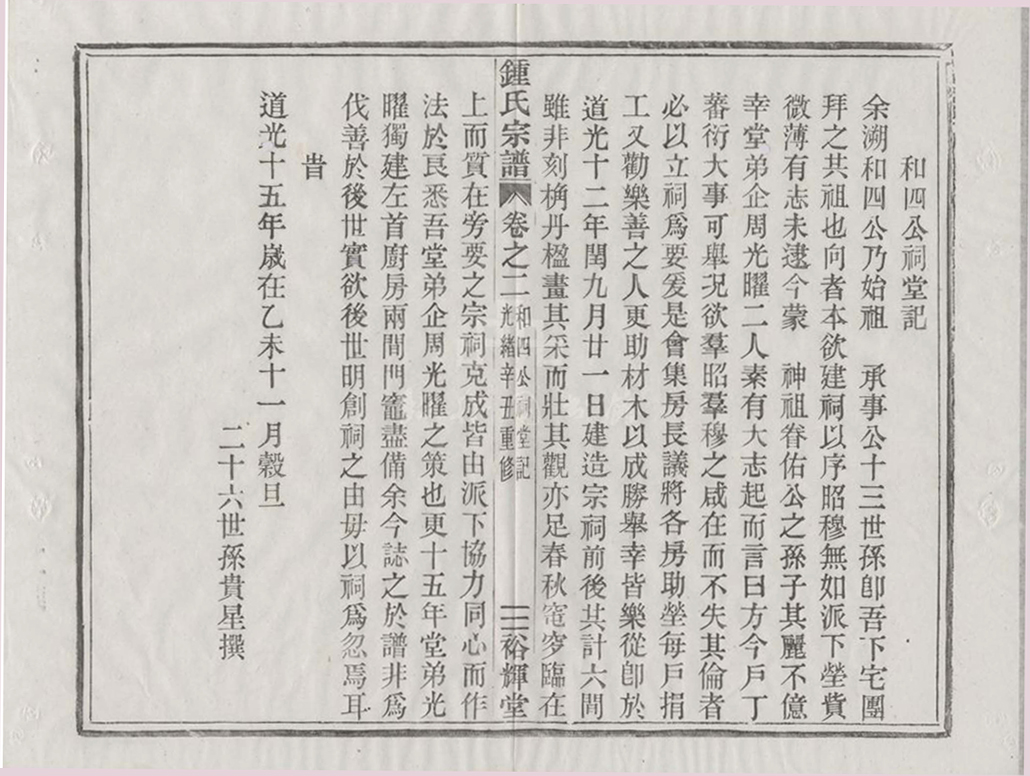 和四公祠堂記
余溯和四公乃始祖　承事公十三世孫卽吾下宅團
拜之共祖也向者本欲建祠以序昭穆無如派下塋貲
微薄有志未逮今蒙　神祖眷佑公之孫子其麗不億
幸堂弟企周光曜二人素有大志起而言曰方今戶丁
蕃衍大事可舉況欲羣昭羣穆之咸在而不失其倫者
必以立祠爲要爰是會集房長議將各房助塋每戶捐
工又勸樂善之人更助材木以成勝舉幸皆樂從卽於
道光十二年閏九月廿一日建造宗祠前後共計六間
雖非刻桷丹楹畫其采而壯其觀亦足春秋窀穸臨在
鍾氏宗譜 卷之二 和四公祠堂記 光緒辛丑重修 三 裕輝堂
上而質在旁要之宗祠克成皆由派下協力同心而作
法於良悉吾堂弟企周光曜之策也更十五年堂弟光
曜獨建左首廚房兩間門竈盡備余今誌之於譜非爲
伐善於後世實欲後世明創祠之由毋以祠爲忽焉耳
旹
道光十五年歲在乙未十一月穀旦
二十六世孫貴星撰